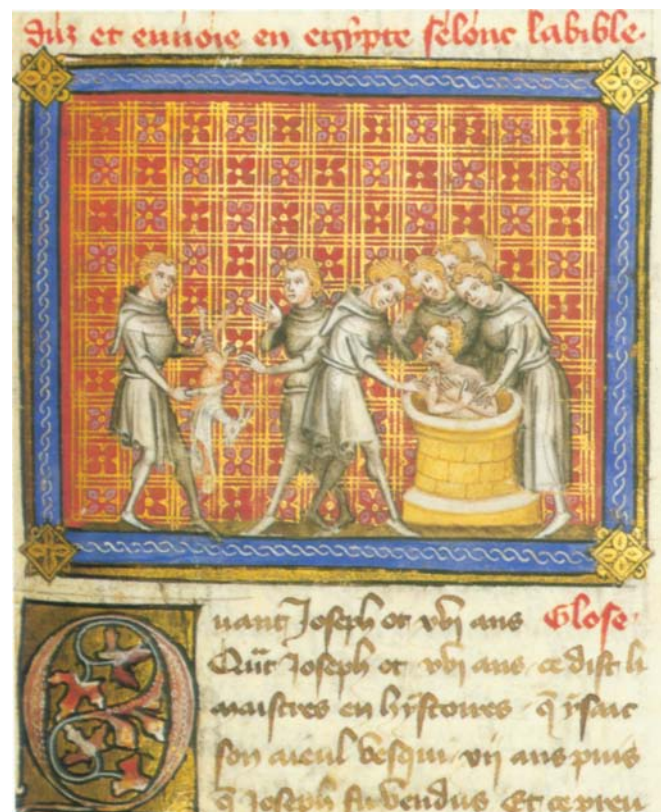 duz et enuoie en egypte selonc la bible.
Quant Joseph ot xvj ans Glose.
Qũt Joseph ot xvj ans ce dist li
maistres en hystoires q̃ ysaac
son aieul vesqui xij ans puis
q̃ Joseph fu vendus Et